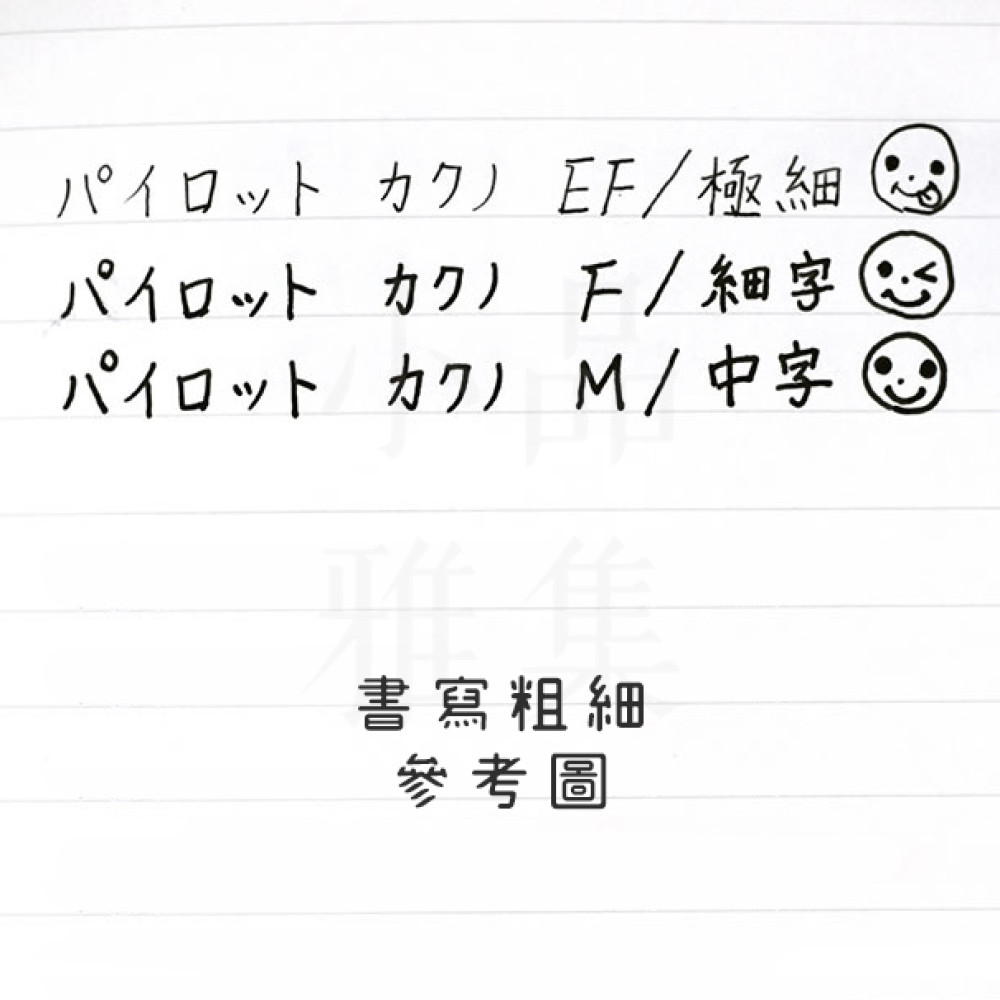 パイロット カクノ EF/極細
パイロット カクノ F/細字
パイロット カクノ M/中字
小品
雅集
書寫粗細
參考圖